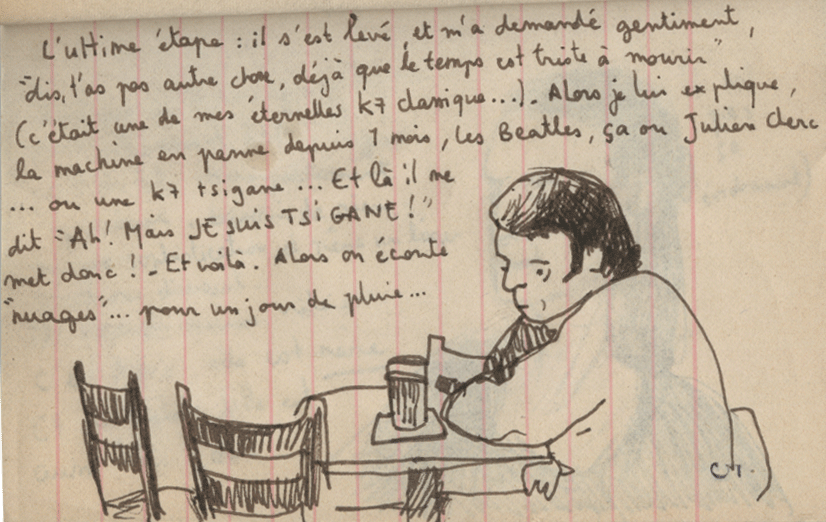 L'ultime étape : il s'est levé, et m'a demandé gentiment,
"dis, t'as pas autre chose, déjà que le temps est triste à mourir"
(c'était une de mes éternelles K7 classique...). Alors je lui explique,
la machine en panne depuis 1 mois, les Beatles, ça ou Julien Clerc
... ou une K7 tsigane ... Et là il me
dit "Ah! Mais JE SUIS TSIGANE!"
met donc ! - Et voilà. Alors on écoute
"nuages"... pour un jour de pluie...